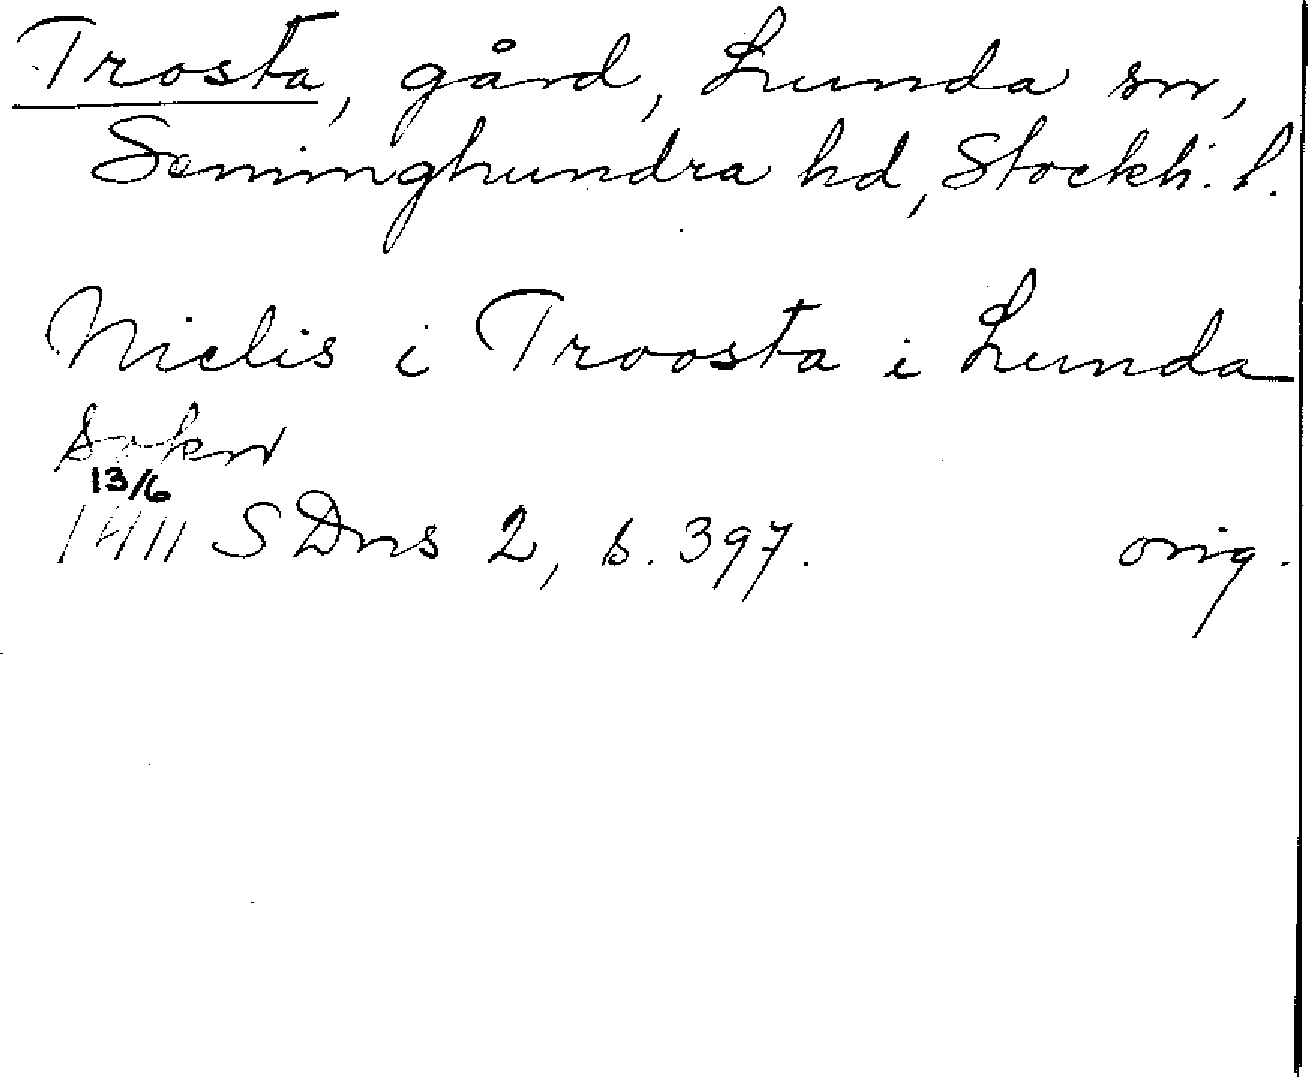 Trosta, gård, Lunda sn,
Seminghundra hd, Stockh. l.
Nielis i Troosta i Lunda
sokn
13/6
1411 SDns 2, s. 397. orig.